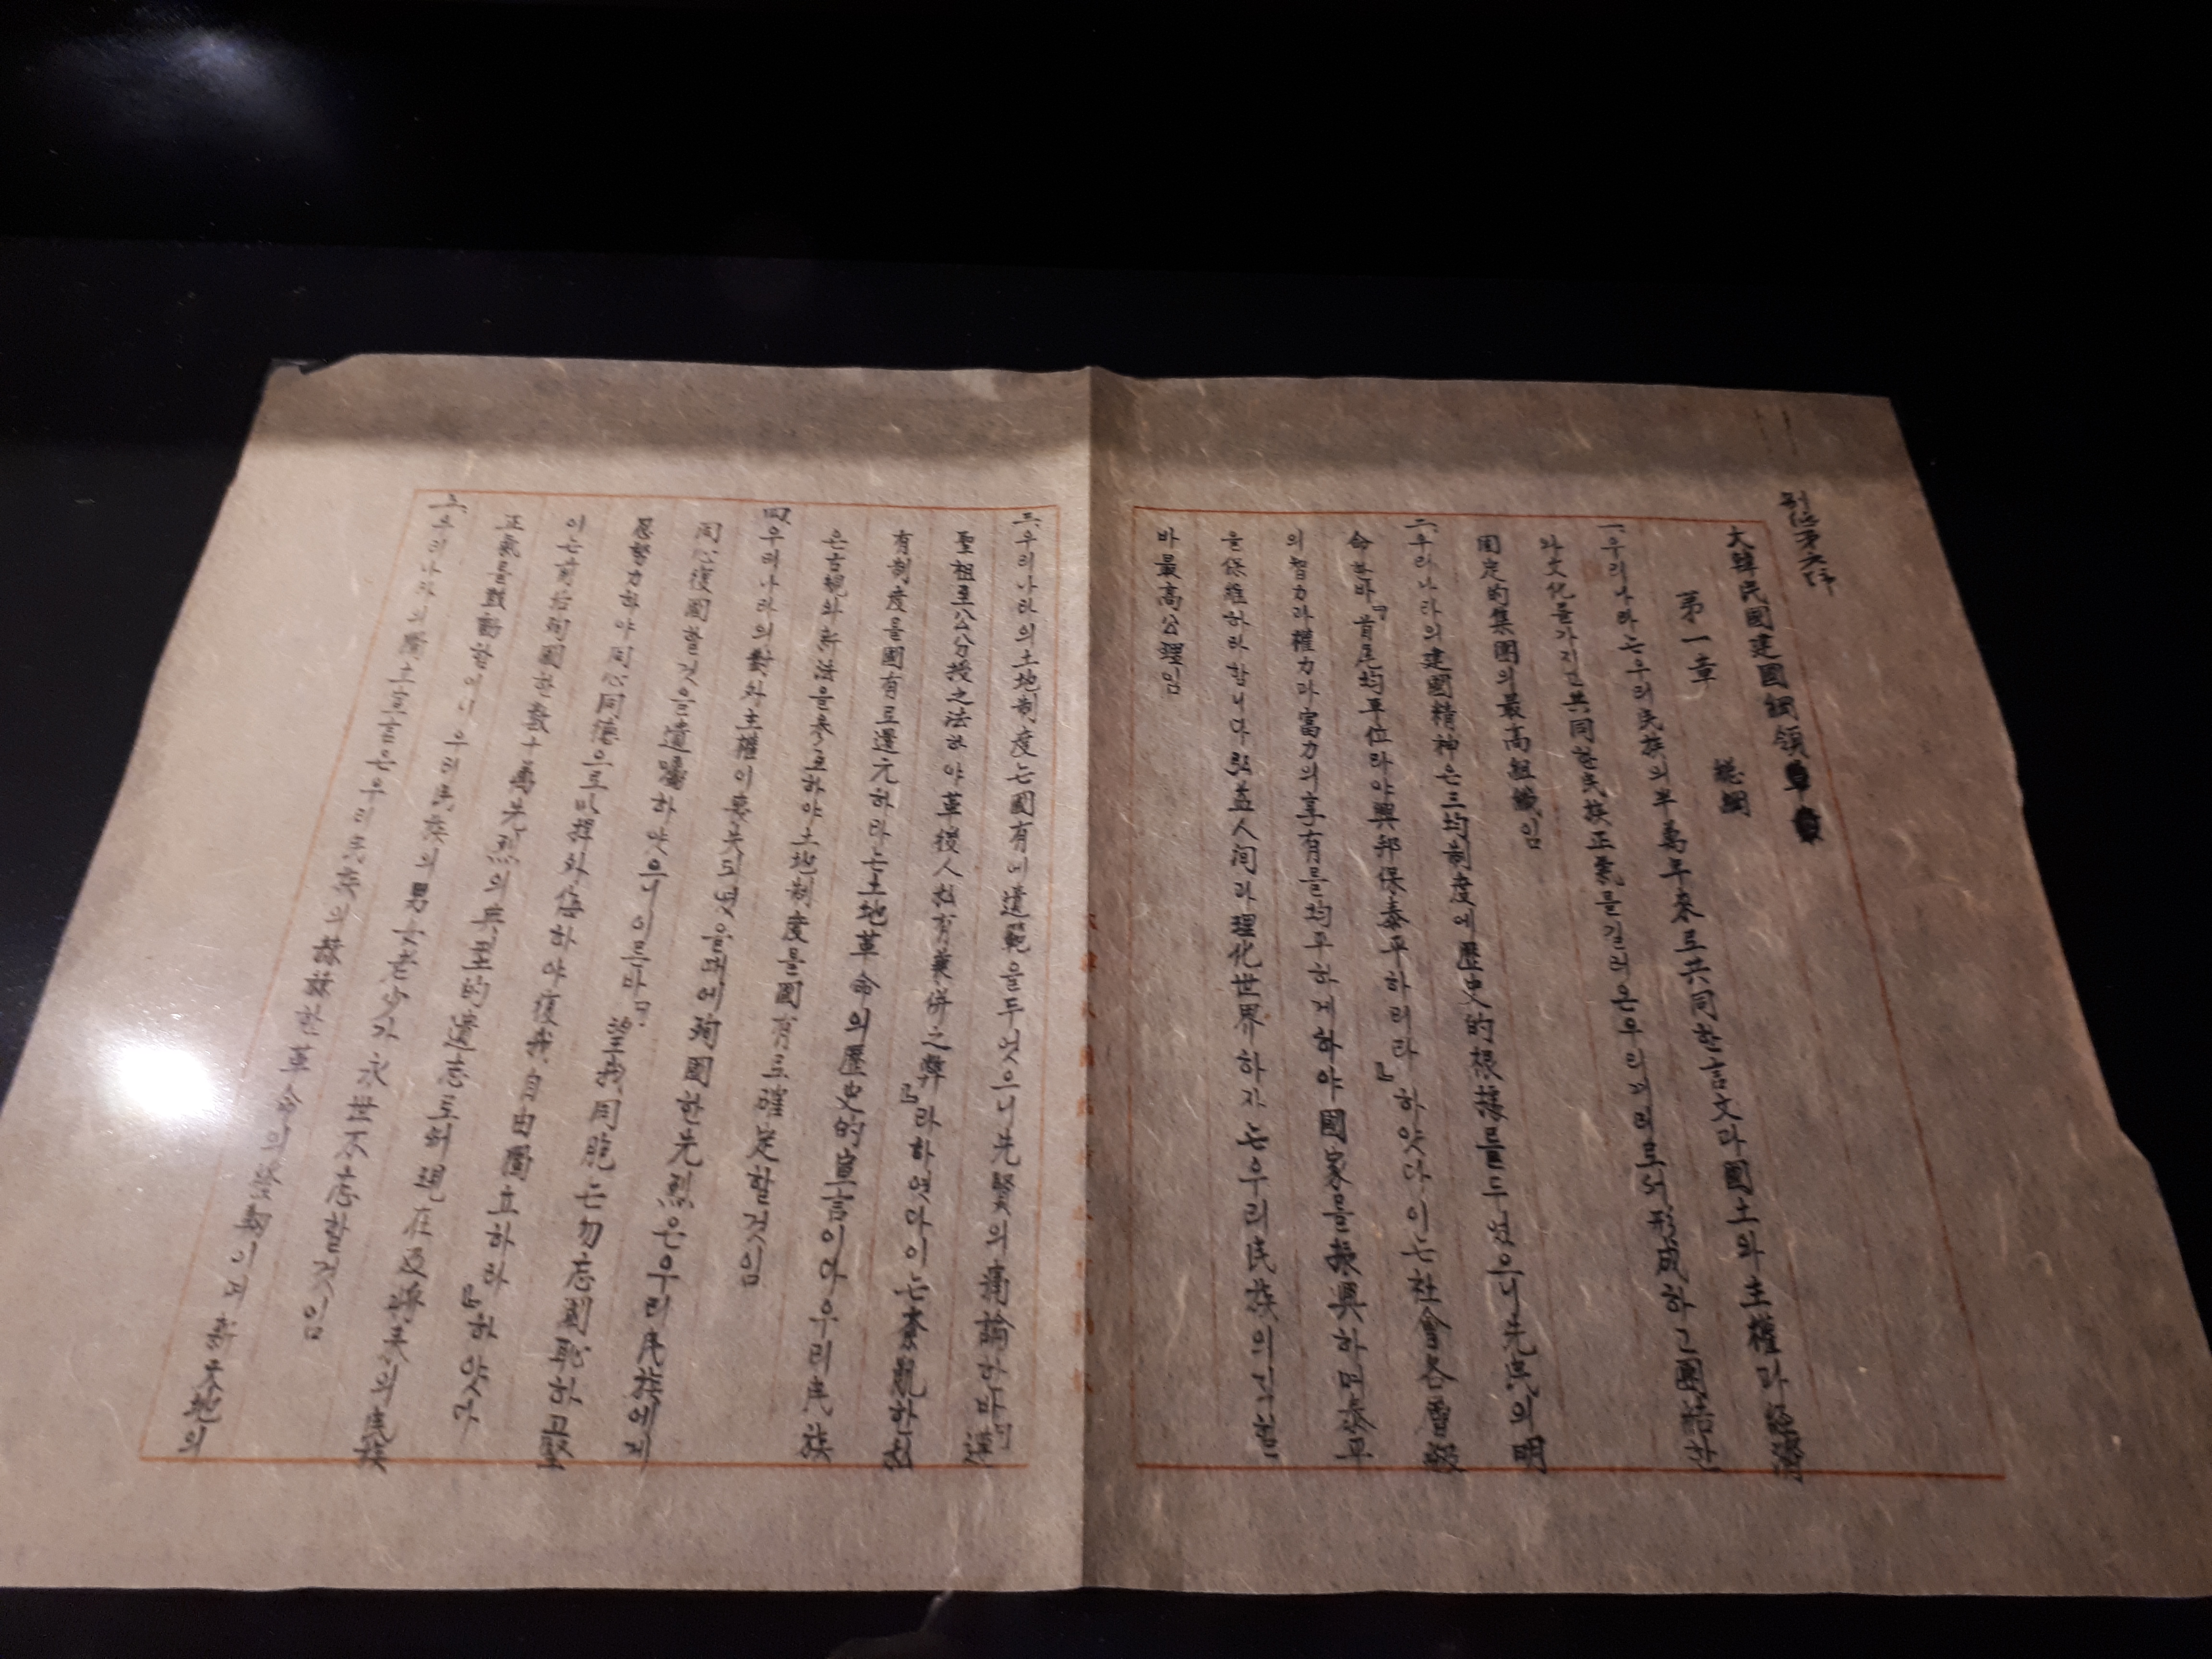 大韓民國建國綱領
第一章 總綱
一、우리나라는우리民族의半萬年來로共同한言文과國土와主權과經濟
와文化를가지고共同한民族正氣를길러온우리끼리로서形成하고團結한
固定的集團의最高組織임
二、우리나라의建國精神은三均制度에歷史的根據를두었으니先民의明
命한바『首尾均平位라야興邦保泰平하리라』하얏다이는社會各層級
의智力과權力과富力의享有를均平하게하야國家를振興하며泰平
을保維하라함니다弘益人间과理化世界하자는우리民族의직힐
바最高公理임
三、우리나라의土地制度는國有에遺範을두엇으니先賢의痛論한바『遵
聖祖至公分授之法하야革後人私有兼併之弊』라하엿다이는紊亂한私
有制度를國有로還元하라는土地革命의歷史的宣言이다우리民族
은古規와新法을參互하야土地制度를國有로確定할것임
四、우리나라의對外主權이喪失되엿을때에殉國한先烈은우리民族에게
同心復國할것을遺囑하얏으니이른바『望我同胞는勿忘國恥하고堅
忍努力하야同心同德으로以捍外侮하야復我自由獨立하라』하얏다
이는前后殉國한數十萬先烈의典型的遺志로써現在及將來의民族
正氣를鼓動함이니우리民族의男女老少가永世不忘할것임
五、우리나라의獨立宣言은우리民族의赫赫한革命의發動이며新天地의